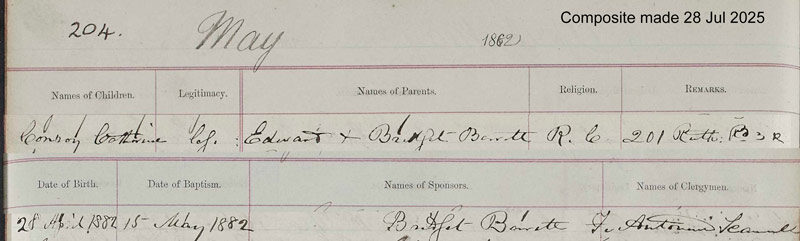 204.
May
1882
Composite made 28 Jul 2025
Names of Children. Legitimacy. Names of Parents. Religion. REMARKS.
Conroy Catherine Edward + Bridget Barrett R. C. 201 Ruth:
Date of Birth. Date of Baptism. Names of Sponsors. Names of Clergymen.
28 April 1882 15 May 1882 Bridget Barrett Fr Antonini